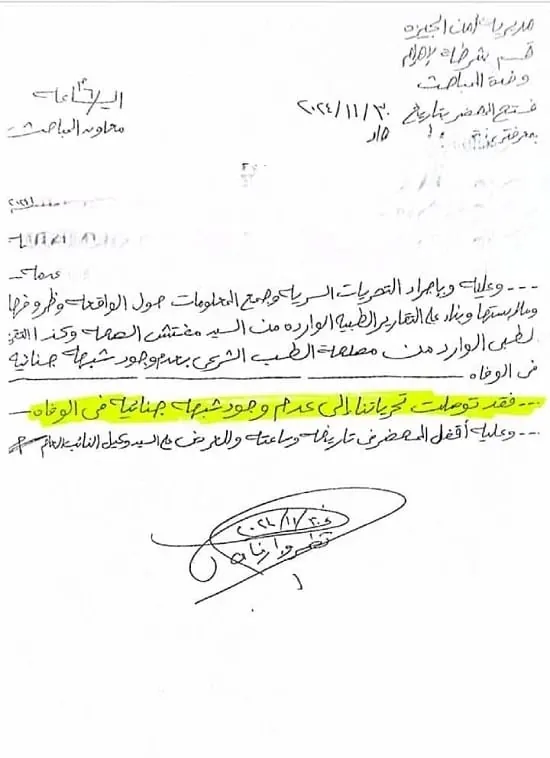 مديرية أمن الجيزة
قسم شرطة الأهرام
وحدة المباحث
الساعة
فتح المحضر بتاريخ ٢٠٢٤/١١/٣٠
معاون المباحث
--- وعليه وبإجراء التحريات السرية وجمع المعلومات حول الواقعة وظروفها
وملابستها وبناء على التقارير الطبية الوارده من السيد مفتش الصحة وكذا التقرير
الطبى الوارد من مصلحة الطب الشرعى بعدم وجود شبهة جنائية
فى الوفاه
--- فقد توصلت تحرياتنا إلى عدم وجود شبهه جنائيه فى الوفاه
--- وعليه أقفل المحضر فى تاريخه وساعته وللعرض على السيد وكيل النائب العام
٢٠٢٤/١١/٣٠